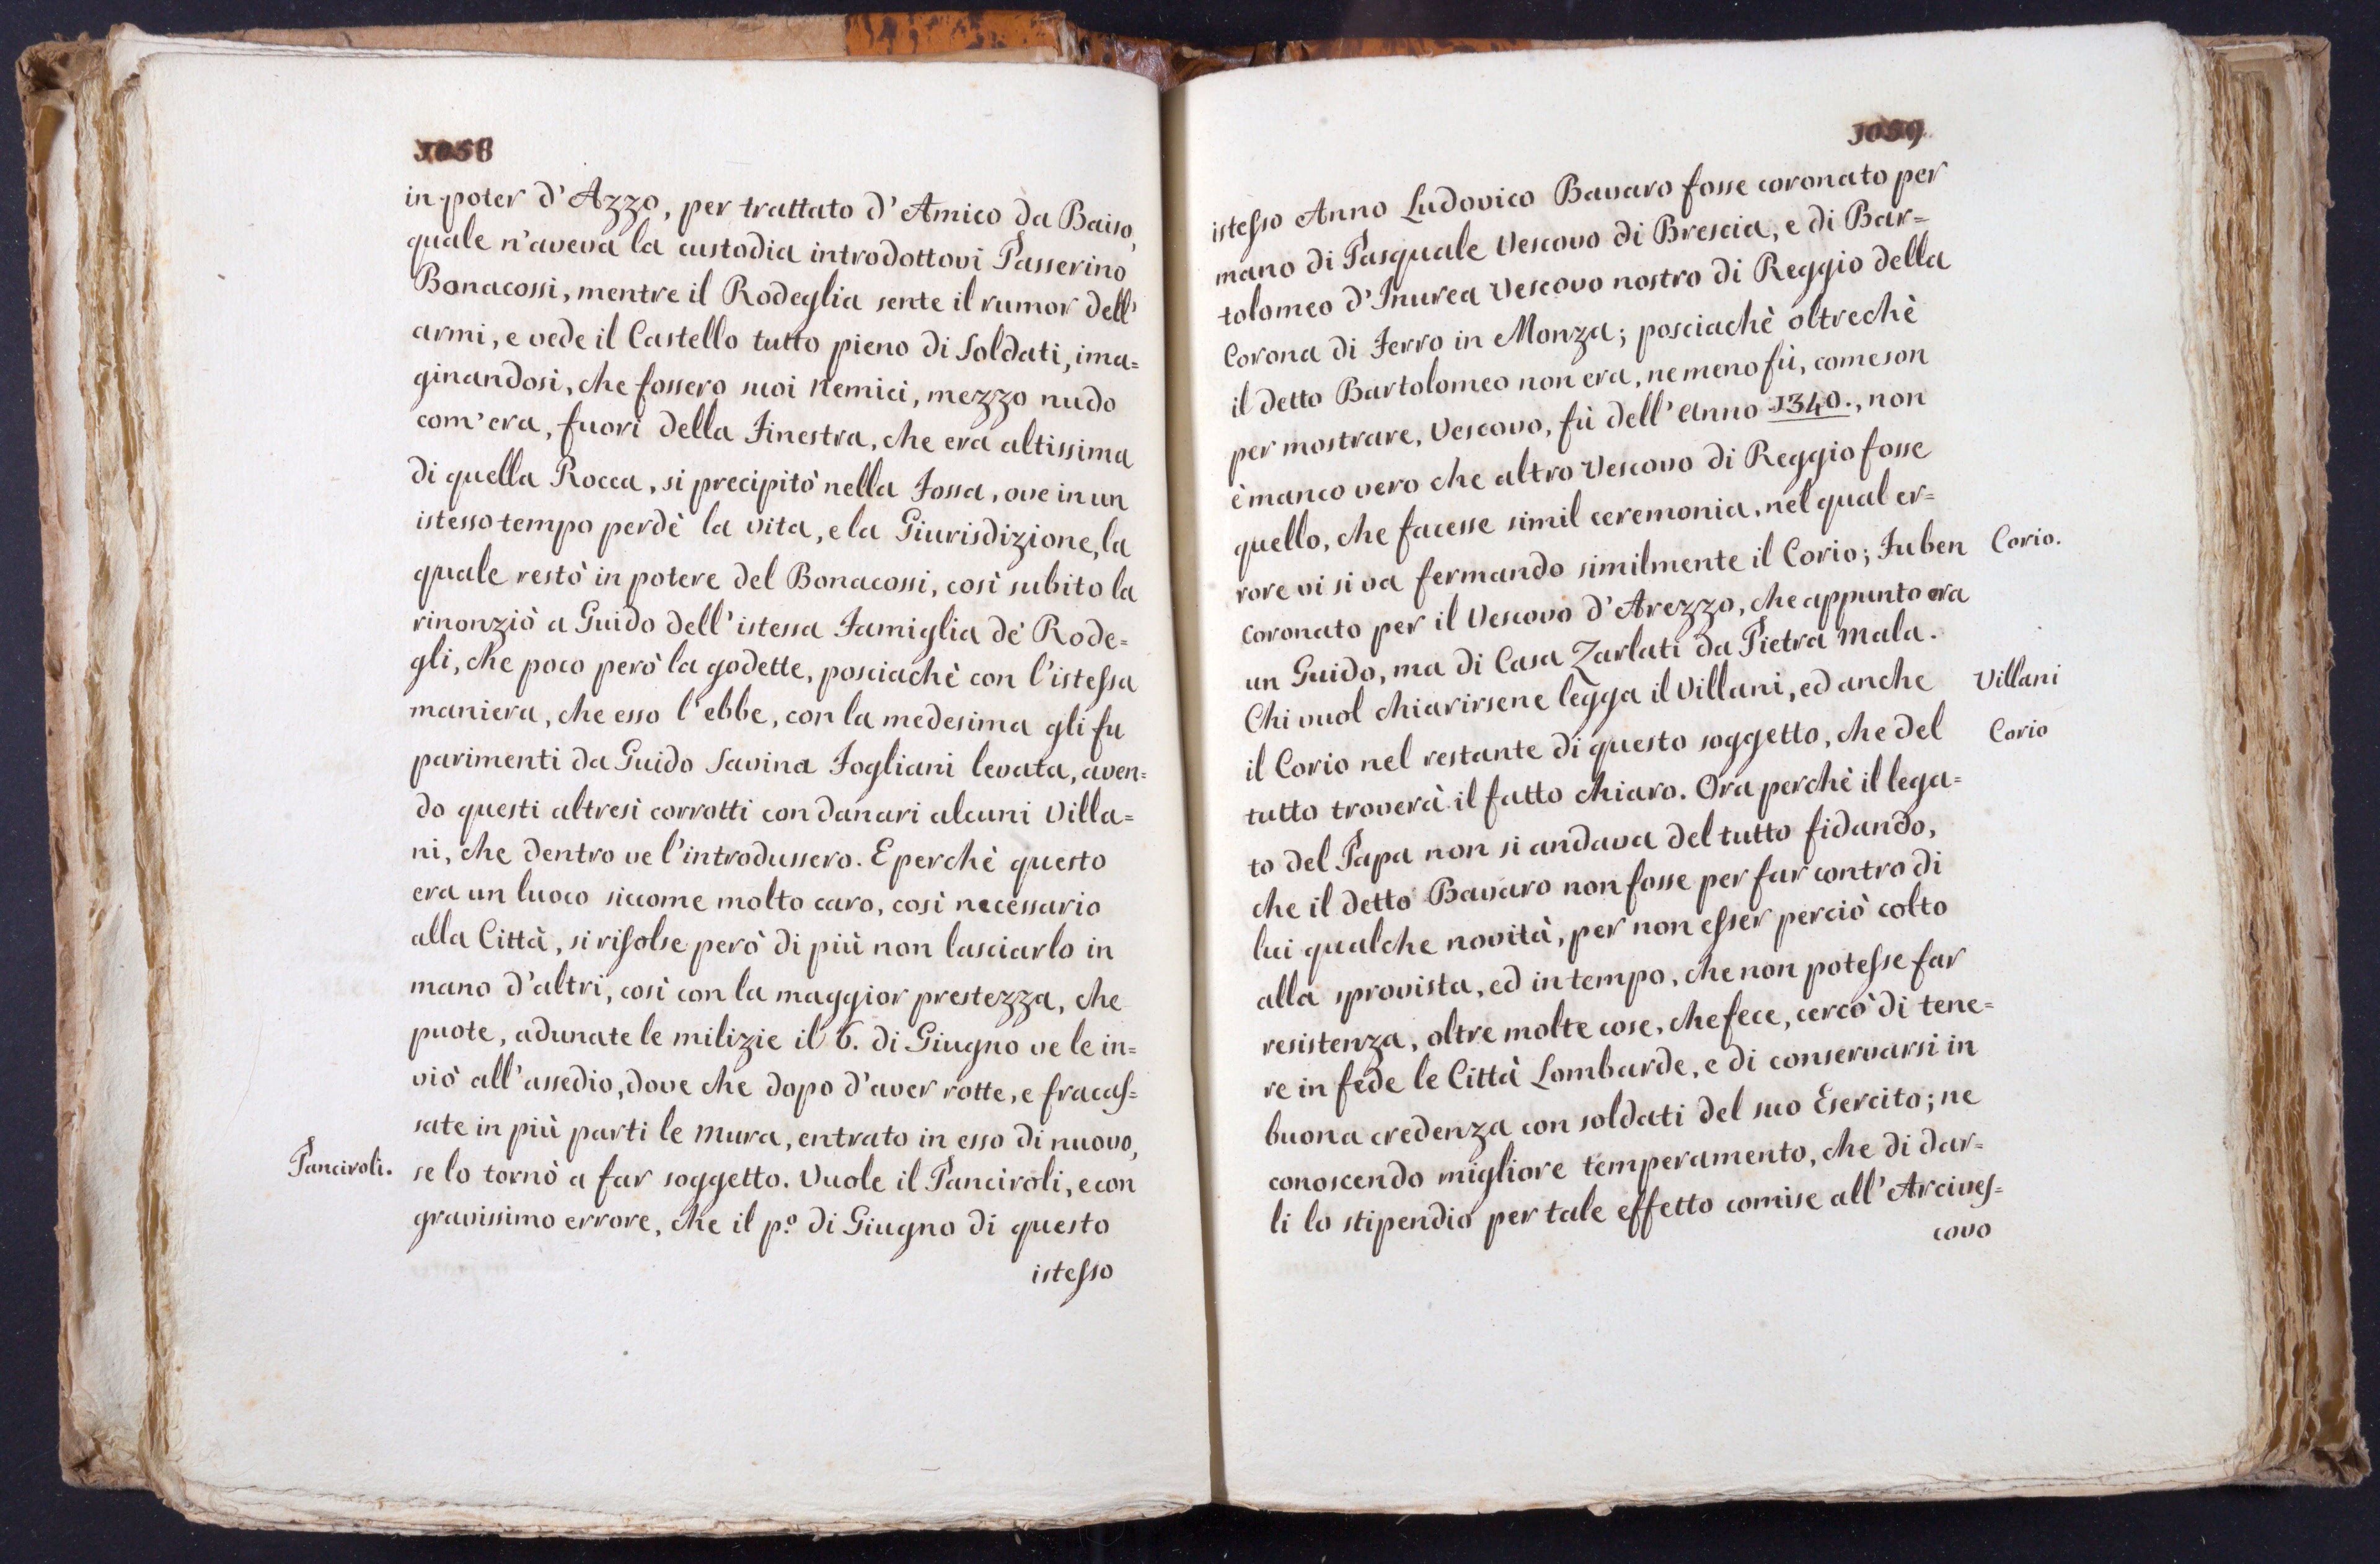 1058
in poter d'Azzo, per trattato d'Amico da Baiso,
quale n'aveva la custodia introdottovi Passerino
Bonacossi, mentre il Rodeglia sente il rumor dell'
armi, e vede il Castello tutto pieno di Soldati, ima=
ginandosi, che fossero suoi Nemici, mezzo nudo
com'era, fuori della Finestra, che era altissima
di quella Rocca, si precipitò nella Fossa, ove in un
istesso tempo perdè la vita, e la Giurisdizione, la
quale restò in potere del Bonacossi, così subito la
rinonziò a Guido dell'istessa Famiglia dè Rode=
gli, che poco però la godette, posciachè con l'istessa
maniera, che esso l'ebbe, con la medesima gli fu
parimenti da Guido Savina Fogliani levata, aven=
do questi altresì corrotti con danari alcuni Villa=
ni, che dentro ve l'introdussero. E perchè questo
era un luoco siccome molto caro, così necessario
alla Città, si risolse però di più non lasciarlo in
mano d'altri, così con la maggior prestezza, che
puote, adunate le milizie il 6. di Giugno ve le in=
viò all'assedio, dove che dopo d'aver rotte, e fracas=
sate in più parti le Mura, entrato in esso di nuovo,
Panciroli.
se lo tornò a far soggetto. Vuole il Panciroli, e con
gravissimo errore, che il pº. di Giugno di questo
istesso
1059
istesso Anno Ludovico Bavaro fosse coronato per
mano di Pasquale Vescovo di Brescia, e di Bar=
tolomeo d'Inurea Vescovo nostro di Reggio della
Corona di Ferro in Monza; posciachè oltrechè
il detto Bartolomeo non era, ne meno fù, come son
per mostrare, Vescovo, fù dell'Anno 1340., non
è manco vero che altro Vescovo di Reggio fosse
quello, che facesse simil ceremonia, nel qual er=
rore vi si va fermando similmente il Corio; Fu ben
Corio.
coronato per il Vescovo d'Arezzo, che appunto era
un Guido, ma di Casa Zarlati da Pietra Mala.
Chi vuol chiarirsene legga il Villani, ed anche
Villani
il Corio nel restante di questo soggetto, che del
Corio
tutto troverà il fatto chiaro. Ora perchè il lega=
to del Papa non si andava del tutto fidando,
che il detto Bavaro non fosse per far contro di
lui qualche novità, per non esser perciò colto
alla sprovista, ed in tempo, che non potesse far
resistenza, oltre molte cose, che fece, cercò di tene=
re in fede le Città Lombarde, e di conservarsi in
buona credenza con soldati del suo Esercito; ne
conoscendo migliore temperamento, che di dar=
li lo stipendio per tale effetto comise all'Arcives=
covo